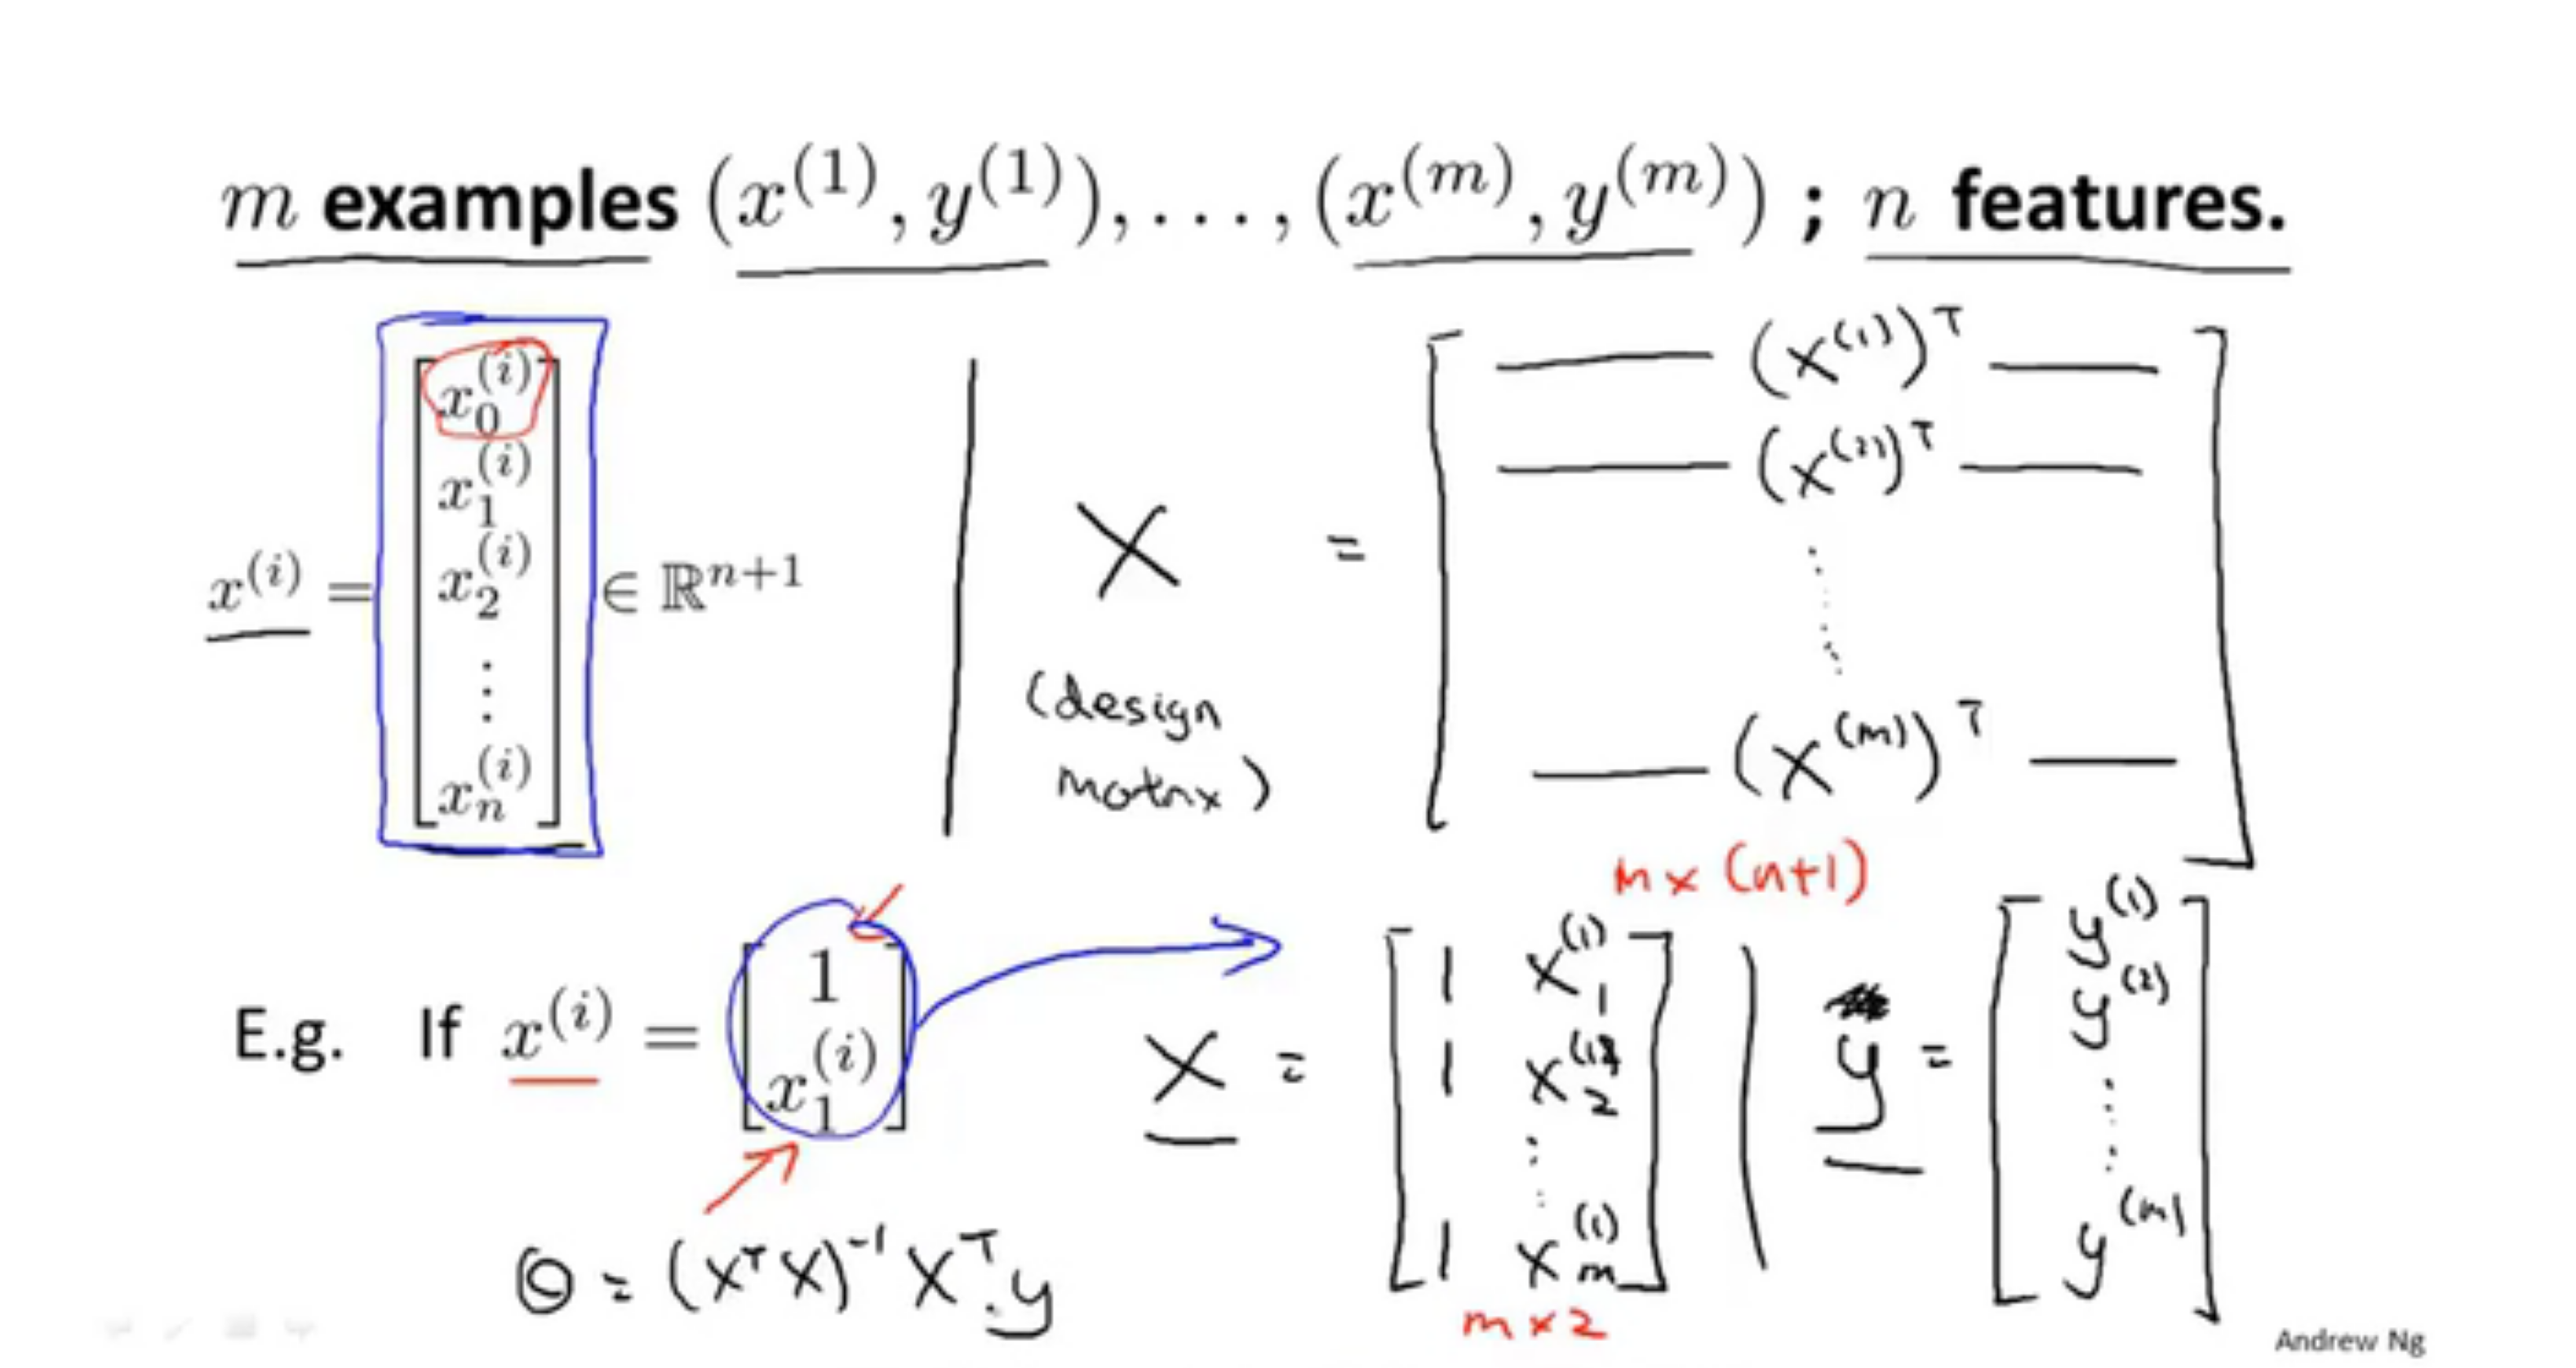 m examples (x^(1), y^(1)), ..., (x^(m), y^(m)) ; n features.
x^(i) = [x_0^(i) x_1^(i) x_2^(i) ⋮ x_n^(i)] ∈ ℝ^(n+1)
X = [— (x^(1))^T —
— (x^(2))^T —
⋮
— (x^(m))^T —]
(design
matrix)
m x (n+1)
E.g. If x^(i) = [1 x_1^(i)]
X = [1 x_1^(1)
1 x_2^(1)
⋮
1 x_m^(1)]
m x 2
y = [y^(1)
y^(2)
⋮
y^(m)]
Θ = (X^T X)^-1 X^T y
Andrew Ng